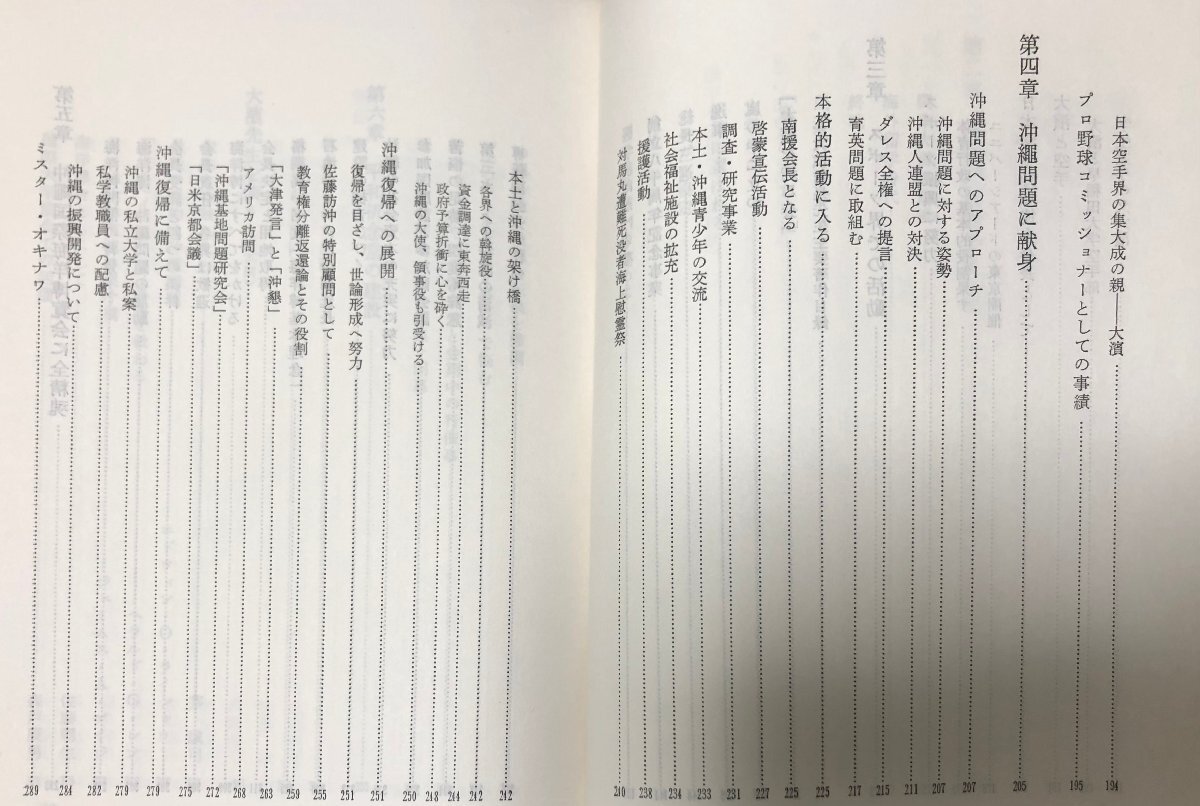 日本空手界の集大成の親――大濱 194
プロ野球コミッショナーとしての事績 195
第四章 沖繩問題に献身 205
沖縄問題へのアプローチ 207
沖縄問題に対する姿勢 207
沖縄人連盟との対決 211
ダレス全権への提言 215
育英問題に取組む 217
本格的活動に入る 225
南援会長となる 225
啓蒙宣伝活動 227
調査・研究事業 231
本土・沖縄青少年の交流 233
社会福祉施設の拡充 234
援護活動 238
対馬丸遭難死没者海上慰霊祭 240
本土と沖縄の架け橋 242
各界への斡旋役 242
資金調達に東奔西走 244
政府予算折衝に心を砕く 248
沖縄の大使、領事役も引受ける 250
沖縄復帰への展開 251
復帰を目ざし、世論形成へ努力 251
佐藤訪沖の特別顧問として 255
教育権分離返還論とその役割 259
「大津発言」と「沖懇」 263
アメリカ訪問 268
「沖縄基地問題研究会」 272
「日米京都会議」 275
沖縄復帰に備えて 279
沖縄の私立大学と私案 279
私学教職員への配慮 282
沖縄の振興開発について 284
ミスター・オキナワ 289